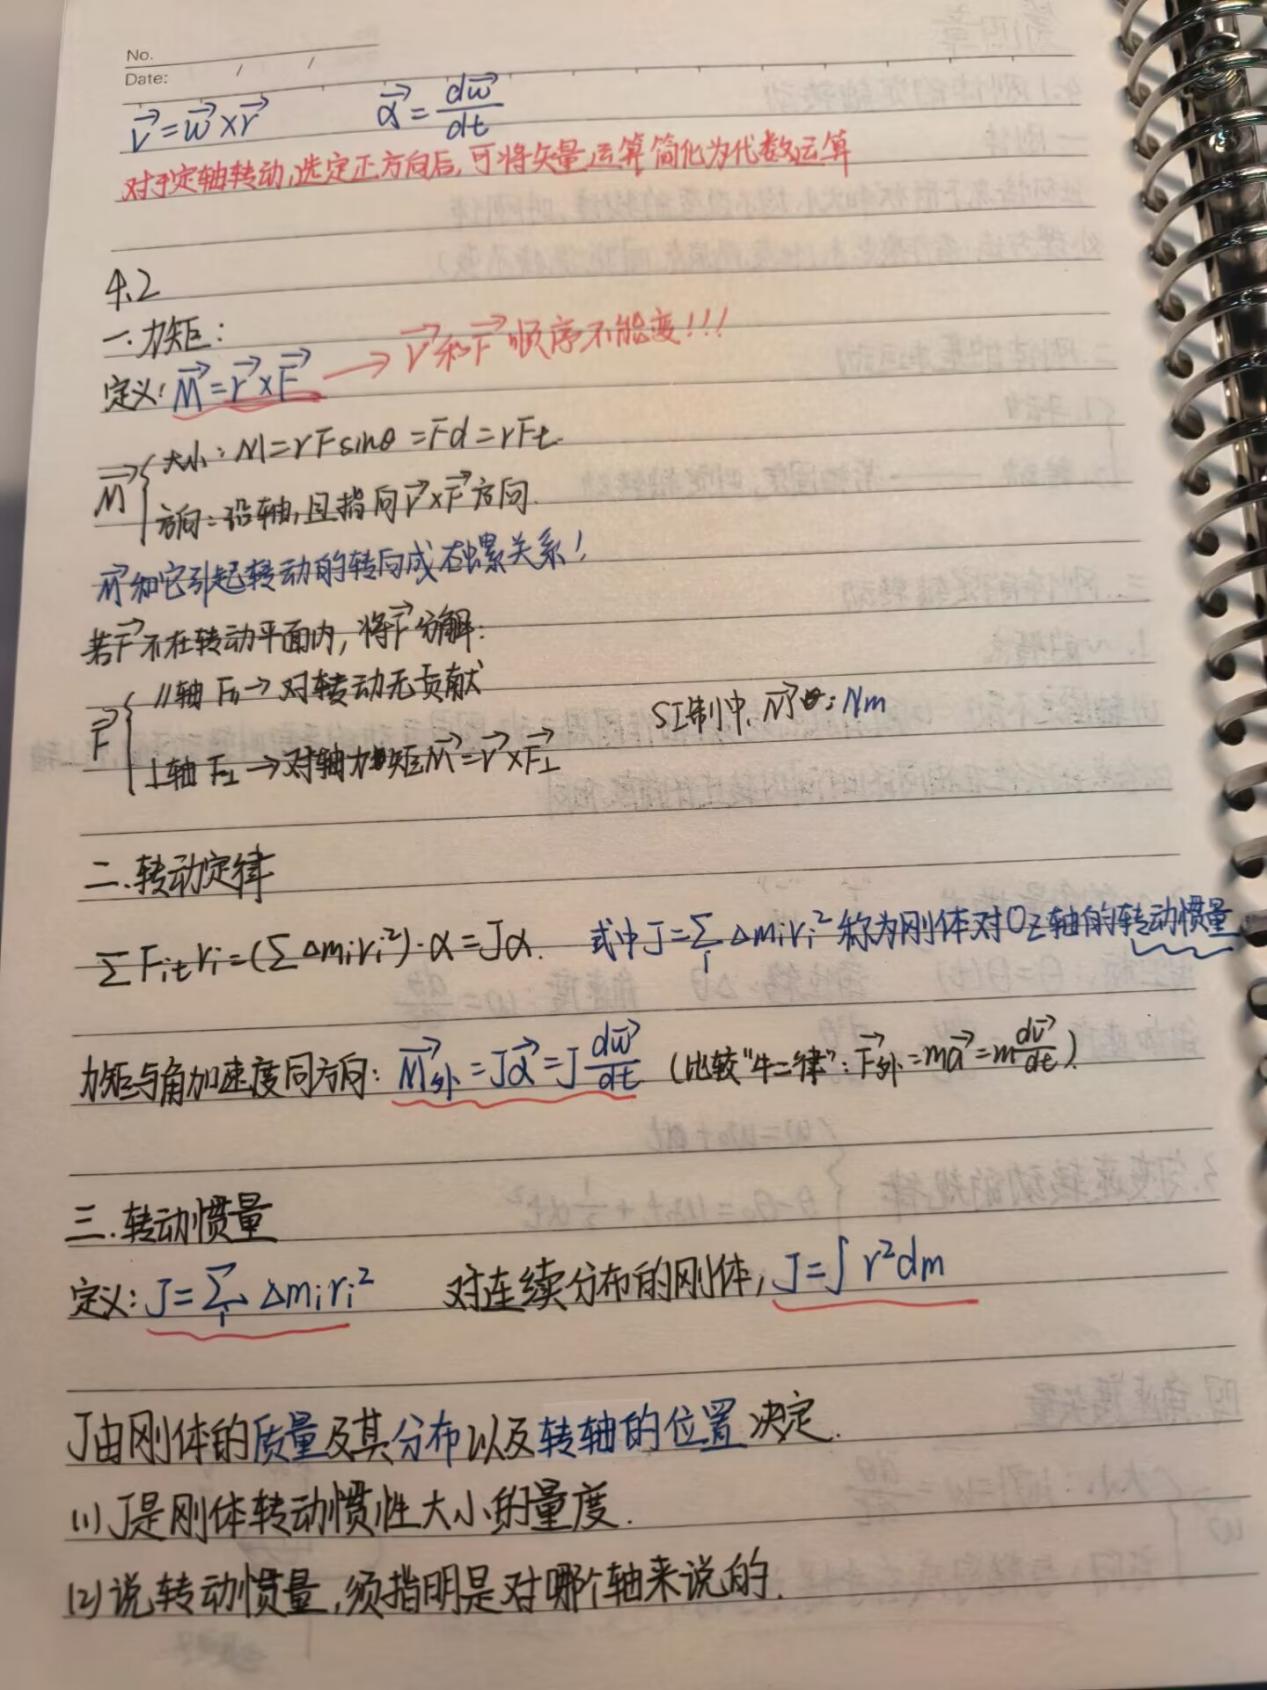 No.
Date: / /
v⃗=w⃗×r⃗ α⃗=dw⃗/dt
对于定轴转动,选定正方向后,可将矢量运算简化为代数运算
4.2
一.力矩:
定义: M⃗=r⃗×F⃗ → r⃗和F⃗顺序不能变!!!
M⃗ { 大小: M=rFsinθ=Fd=rFt.
方向:沿轴,且指向r⃗×F⃗方向.
M⃗和它引起转动的转向成右螺关系!
若F⃗不在转动平面内,将F⃗分解:
F⃗ { //轴 F₁₁→对转动无贡献
⊥轴 F⊥→对轴力矩M⃗=r⃗×F⃗⊥
SI制中, M⃗: Nm
二.转动定律
∑Fitri=(∑Δmiri²)·α=Jα. 式中J=∑i Δmiri²称为刚体对Oz轴的转动惯量
力矩与角加速度同方向: M⃗外=Jα⃗=J dw⃗/dt (比较“牛二律”: F⃗外=ma⃗=m dv⃗/dt)
三.转动惯量
定义: J=∑i Δmiri² 对连续分布的刚体, J=∫r²dm
J由刚体的质量及其分布以及转轴的位置决定.
(1)J是刚体转动惯性大小的量度.
(2)说转动惯量,须指明是对哪个轴来说的.